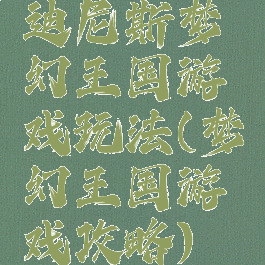 迪尼斯梦
幻王国游
戏玩法(梦
幻王国游
戏攻略)